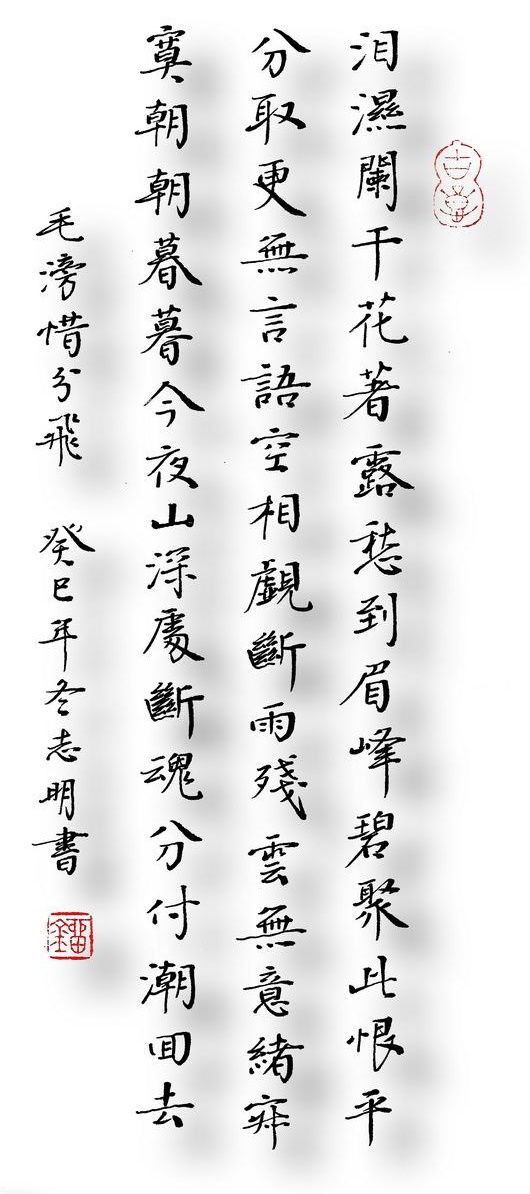 泪濕闌干花著露愁到眉峰碧聚此恨平
分取更無言語空相覷斷雨殘雲無意緒寂
寞朝朝暮暮今夜山深處斷魂分付潮回去
毛滂惜分飛 癸巳年冬志明書